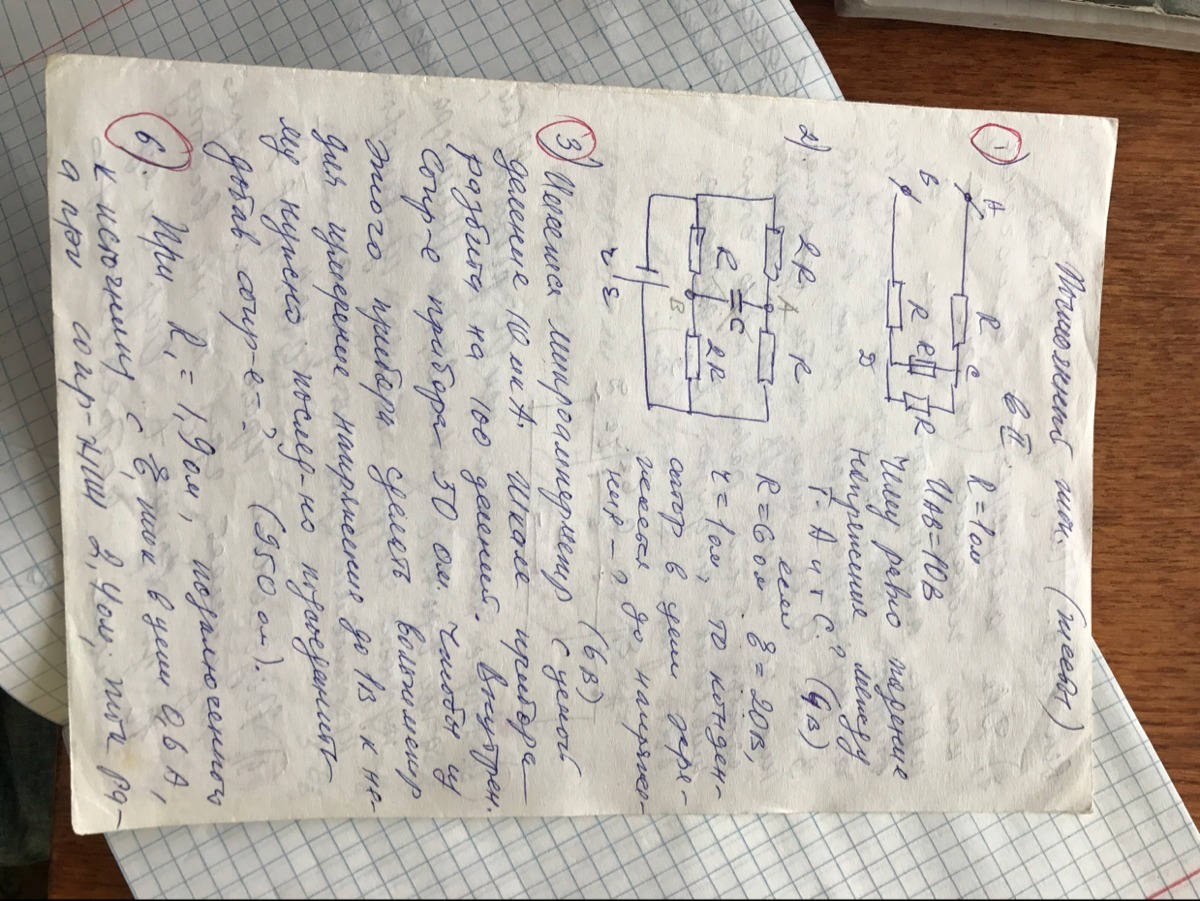 Постоянный ток. (тесты)
в II.
1)
A
B
R
C
R
R
D
R
R = 1 ом
UAB = 10 В
Чему равно падение
напряжение между
т. A и т C? (4 В)
2).
2R
R
A
R
C
B
2R
r ε
если
R = 6 ом ε = 20 В,
r = 1 ом, то конден-
сатор в цепи заря-
жается до напряже-
ния - ? (6 В)
3) Имеется микроамперметр с ценой
деление 10 мкА. Шкала прибора
разбита на 100 делений. Внутрен.
сопр-е прибора - 50 ом. Чтобы из
этого прибора сделать вольтметр
для измерение напряжения до 1 В к не-
му нужно послед-но подсоединить
добав. сопр-е - ? (950 ом).
6). При R₁ = 1,9 ом, подключенном
к источнику с ε, ток в цепи 0,6 А,
а при сопр-нии 2,4 ом. ток ра-